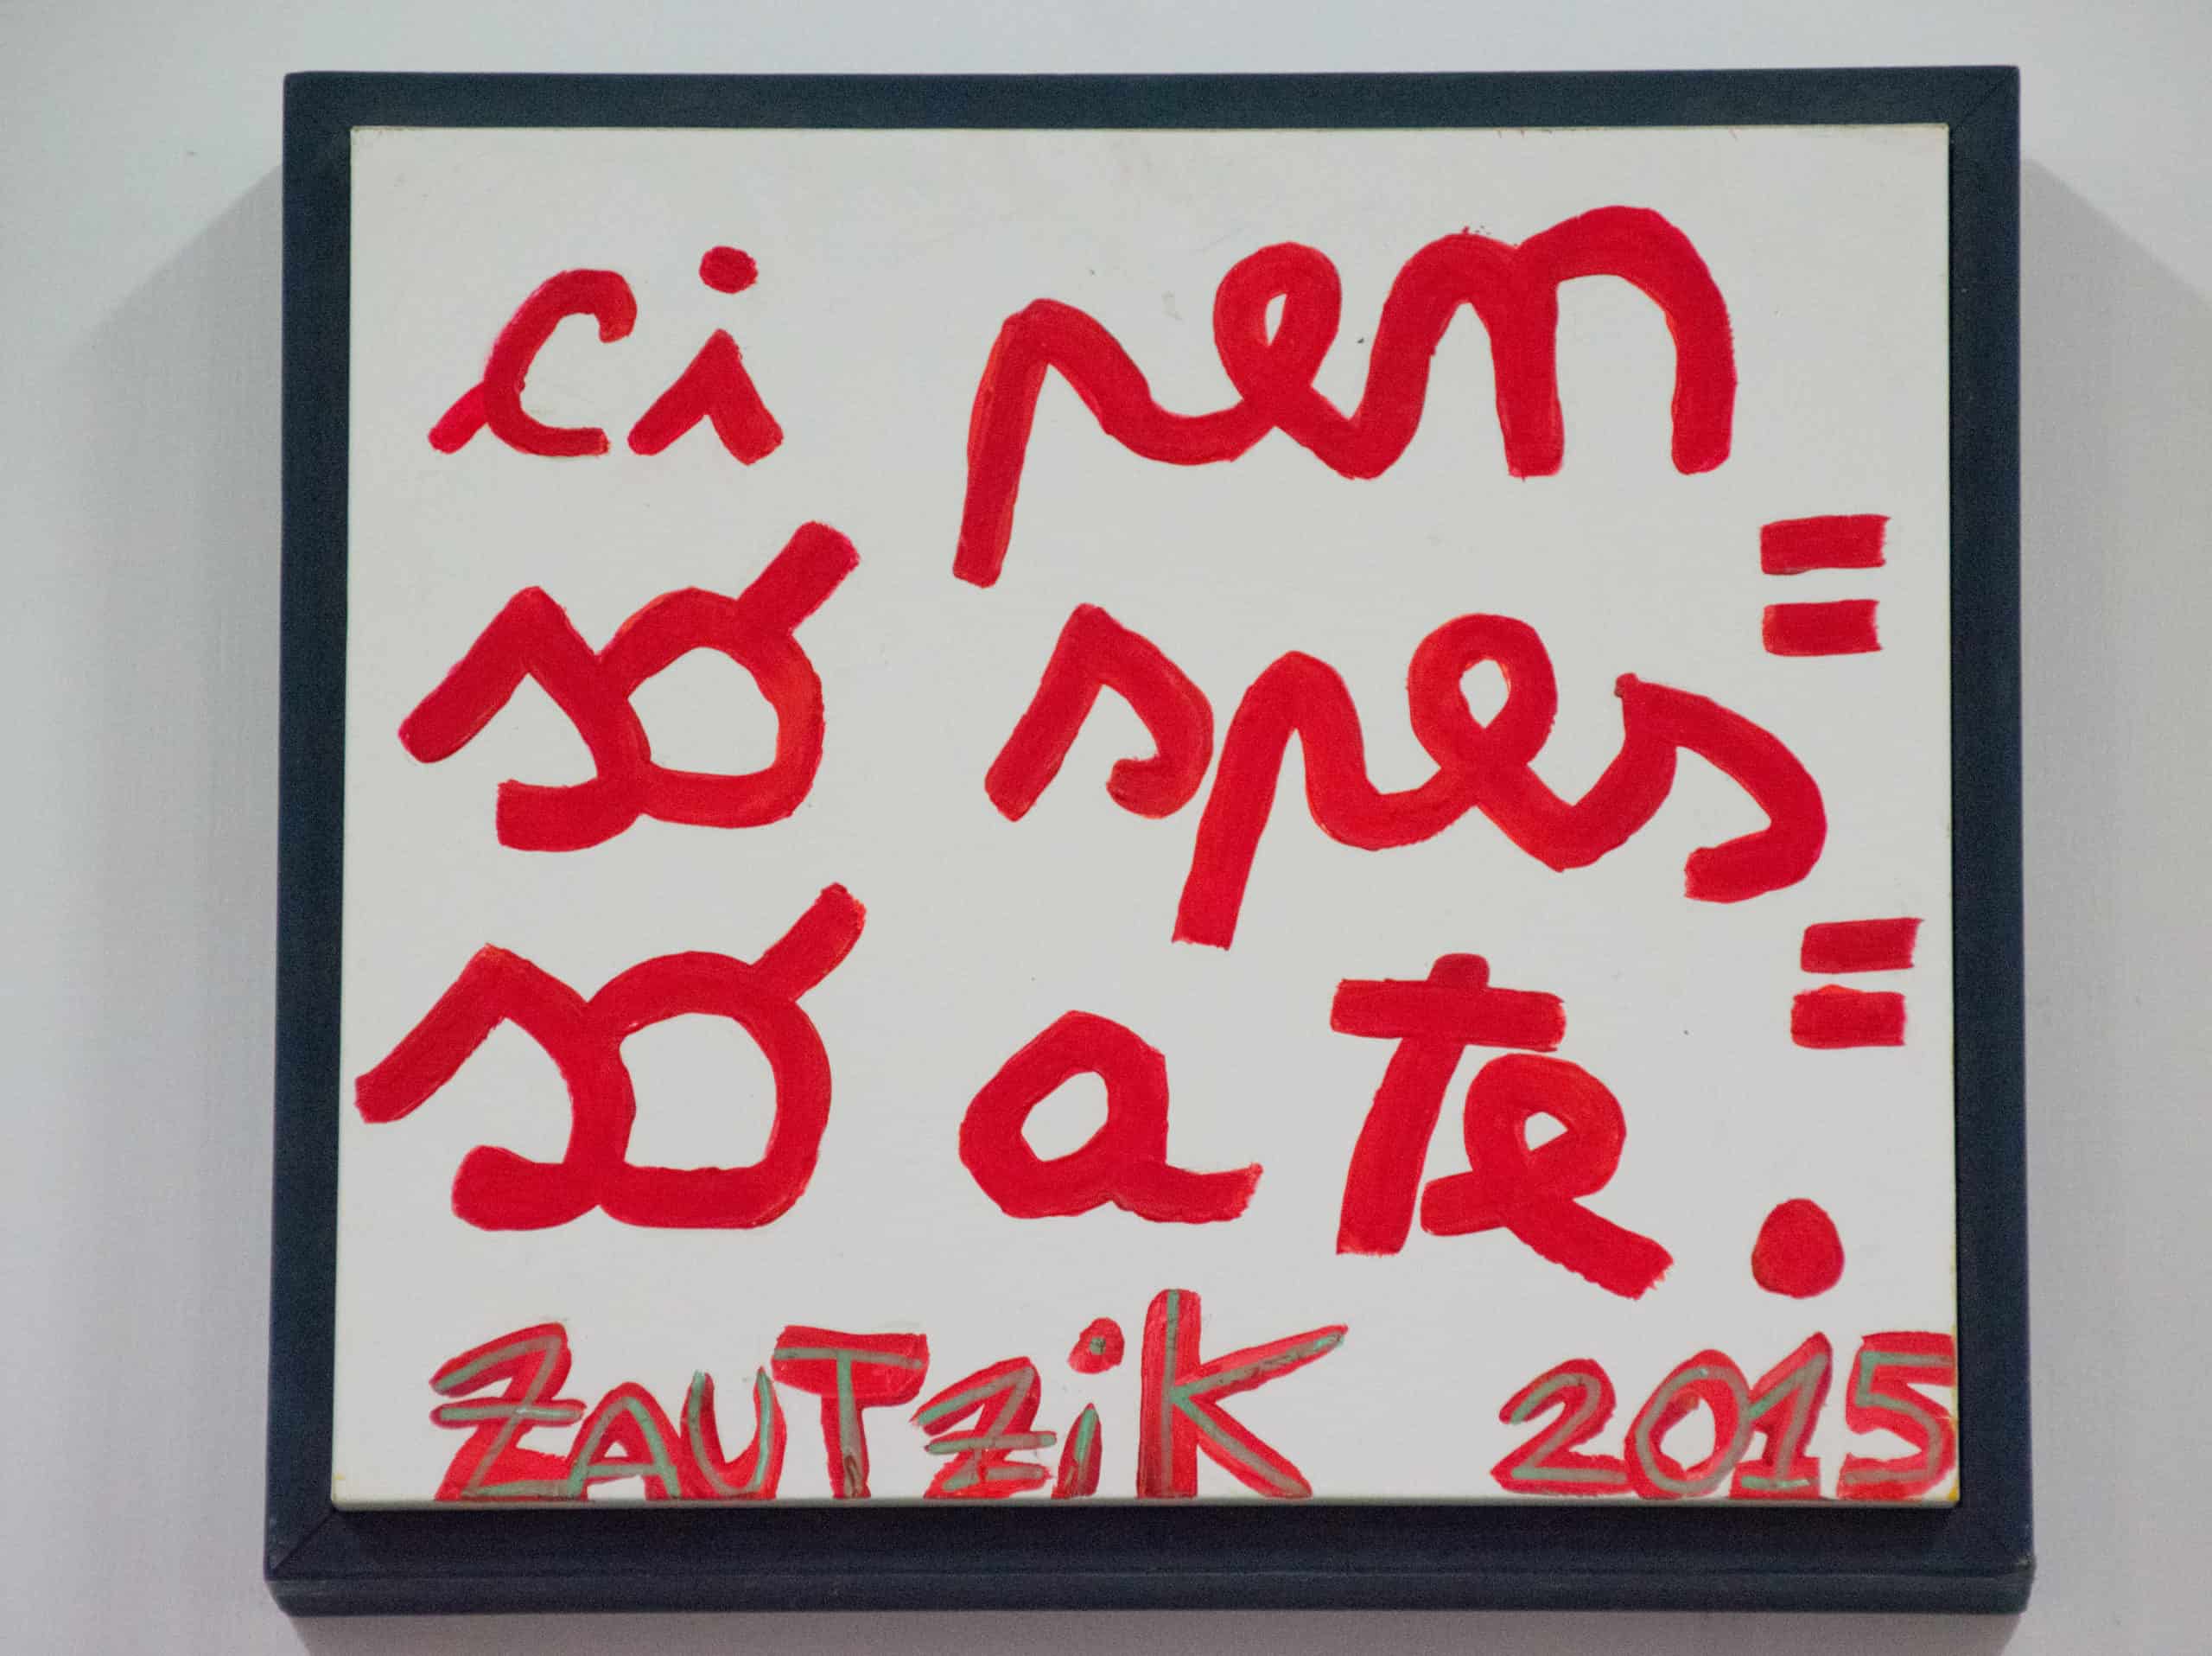 ci pen=
so spes=
so a te.
ZAUTZiK 2015